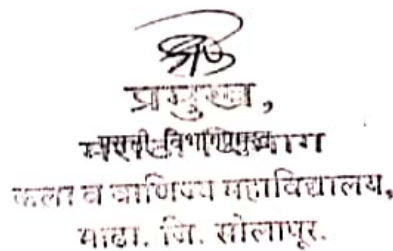 प्रमुख,
विभाग
कला व वाणिज्य महाविद्यालय,
माढा. जि. सोलापूर.